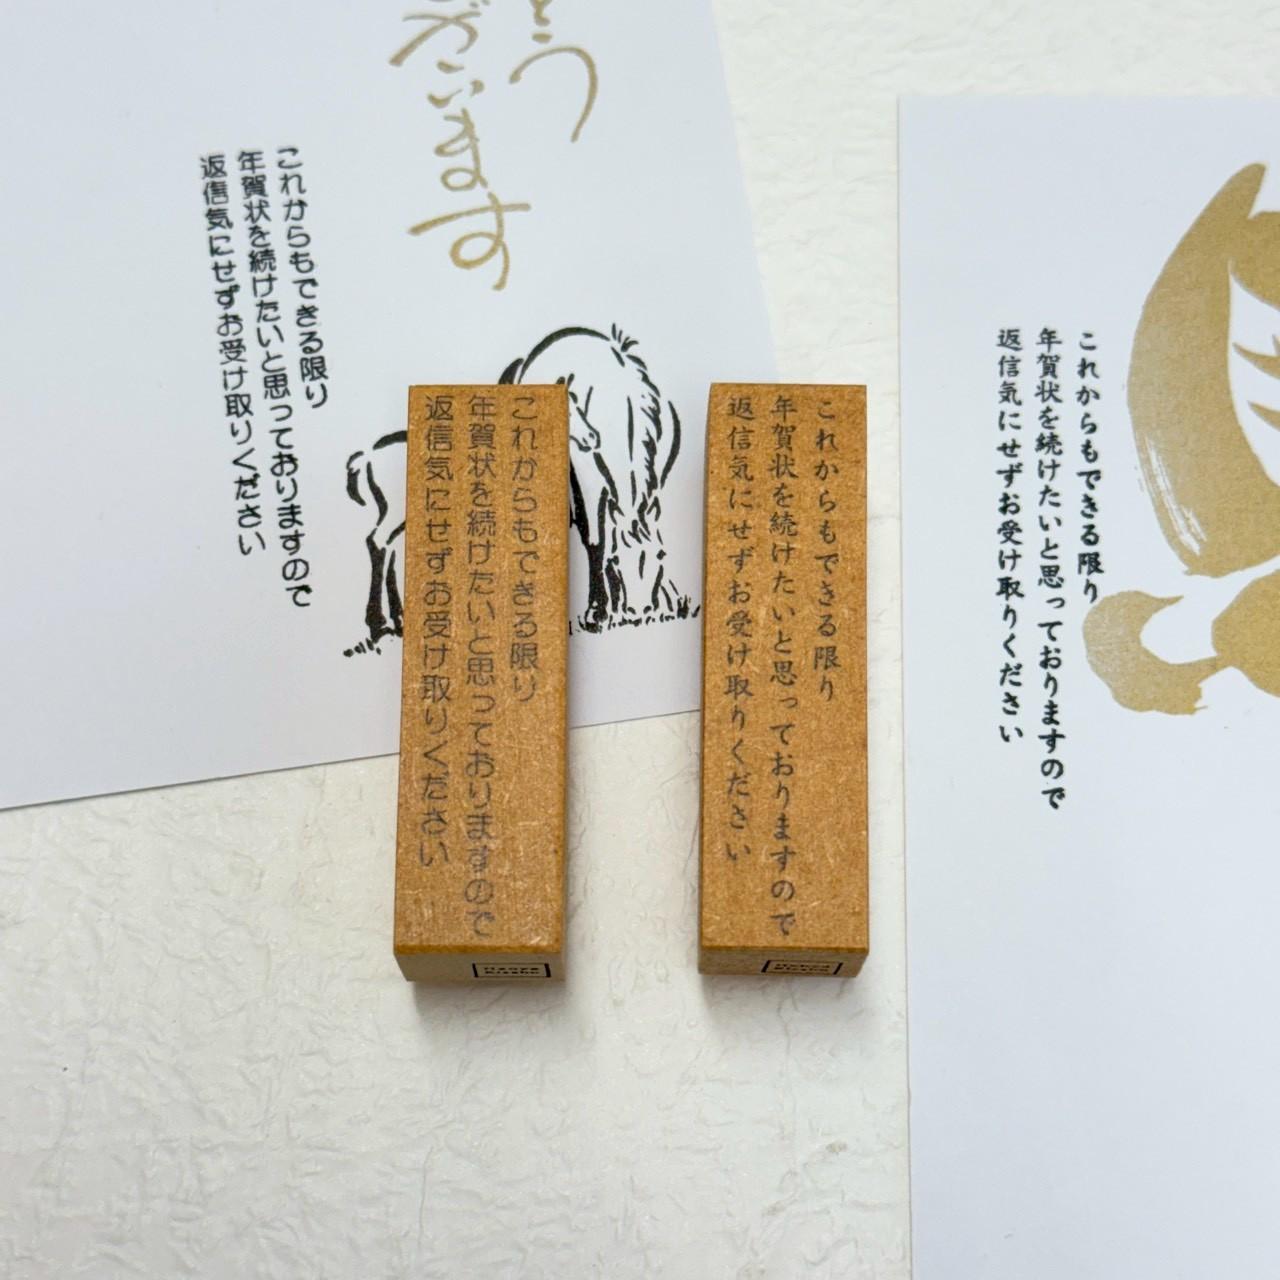 とう
ございます
これからもできる限り
年賀状を続けたいと思っておりますので
返信気にせずお受け取りください
これからもできる限り
年賀状を続けたいと思っておりますので
返信気にせずお受け取りください
これからもできる限り
年賀状を続けたいと思っておりますので
返信気にせずお受け取りください
これからもできる限り
年賀状を続けたいと思っておりますので
返信気にせずお受け取りください